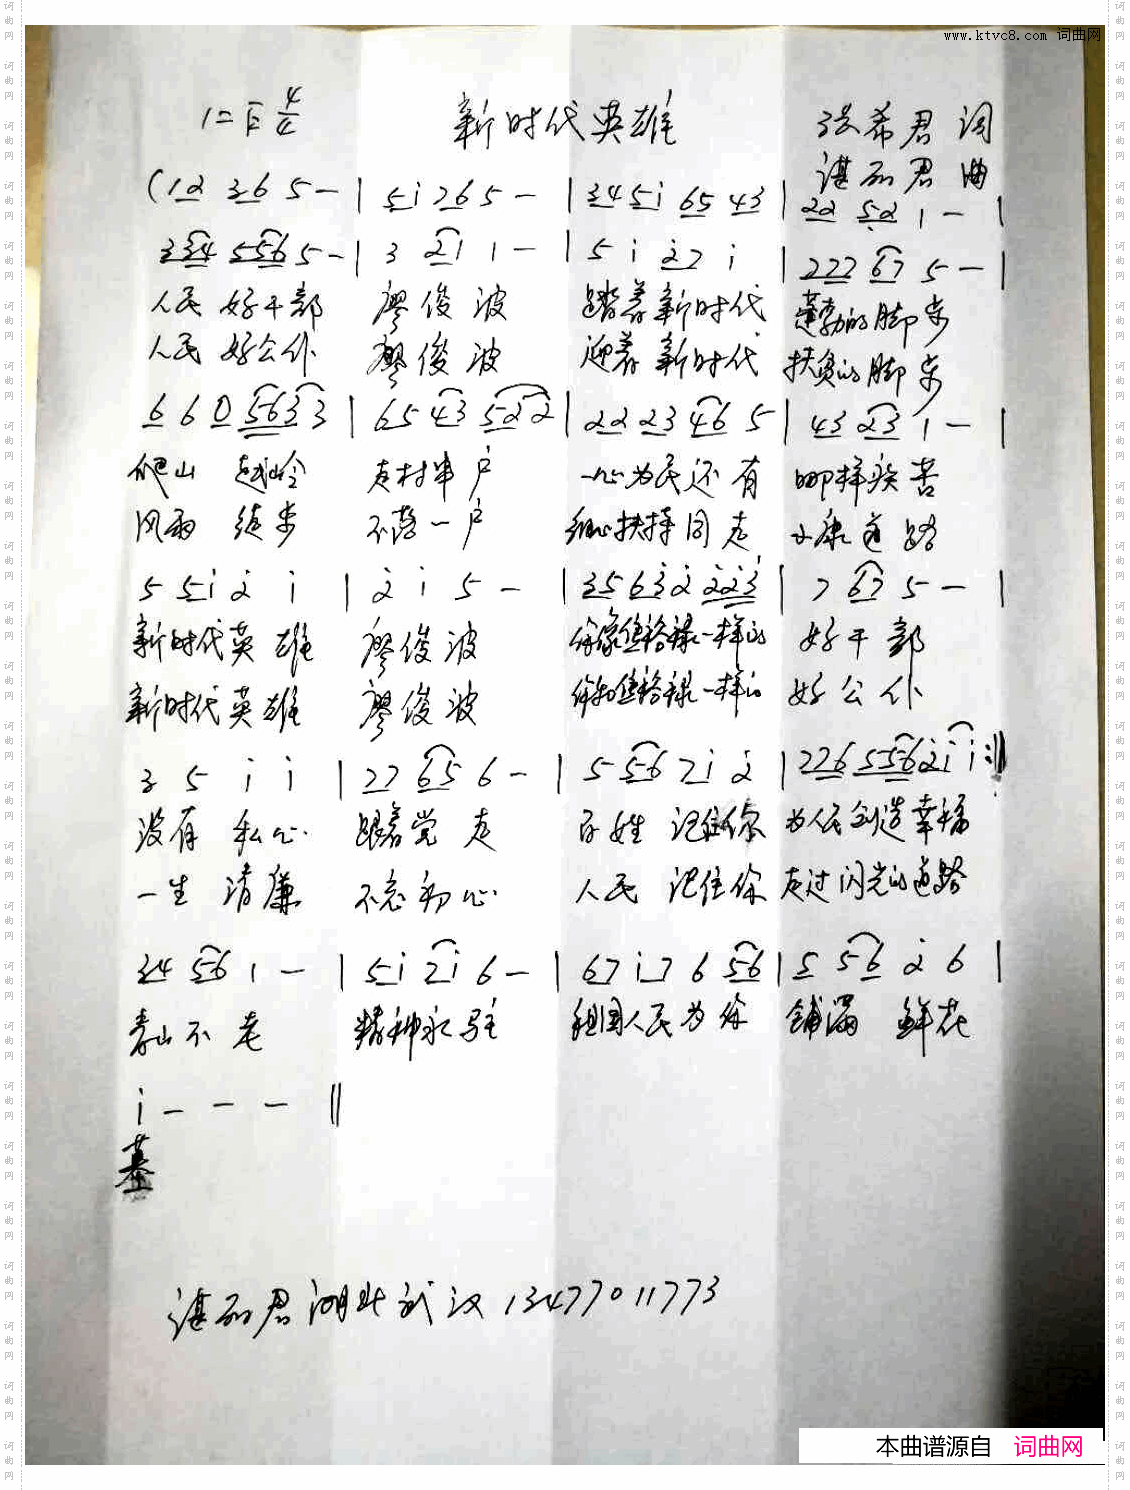 www.ktvc8.com 词曲网
1=E 4/4 新时代英雄 张希君 词
谌丽君 曲
(12 36 5 - | 5i 76 5 - | 34 5i 65 43 | 22 52 1 - |
334 556 5 - | 3 21 1 - | 5 i 27 i | 222 67 5 - |
人民 好干部 廖俊波 踏着新时代 蓬勃的脚步
人民 好公仆 廖俊波 迎着新时代 扶贫的脚步
6 6 0 563 3 | 65 43 52 2 | 22 23 46 5 | 43 23 1 - |
爬山 越岭 走村串户 一心为民还有 哪样疾苦
风雨 徒步 不落一户 细心扶择同走 小康道路
5 5i 2 i | 2 i 5 - | 35 632 i23 | 7 67 5 - |
新时代英雄 廖俊波 你像焦裕禄一样的 好干部
新时代英雄 廖俊波 你和焦裕禄一样的 好公仆
3 5 i i | 27 65 6 - | 5 56 7i 2 | 226 5562i i :‖
没有 私心 跟着党走 百姓 记住你 为人民创造幸福
一生 清廉 不忘初心 人民 记住你 走过闪光的道路
34 56 1 - | 5i 2i 6 - | 67 i7 6 56 | 5 56 2 6 |
青山不老 精神永驻 祖国人民为你 铺满 鲜花
i - - - ‖
墓
谌丽君湖北武汉13477011773
本曲谱源自 词曲网